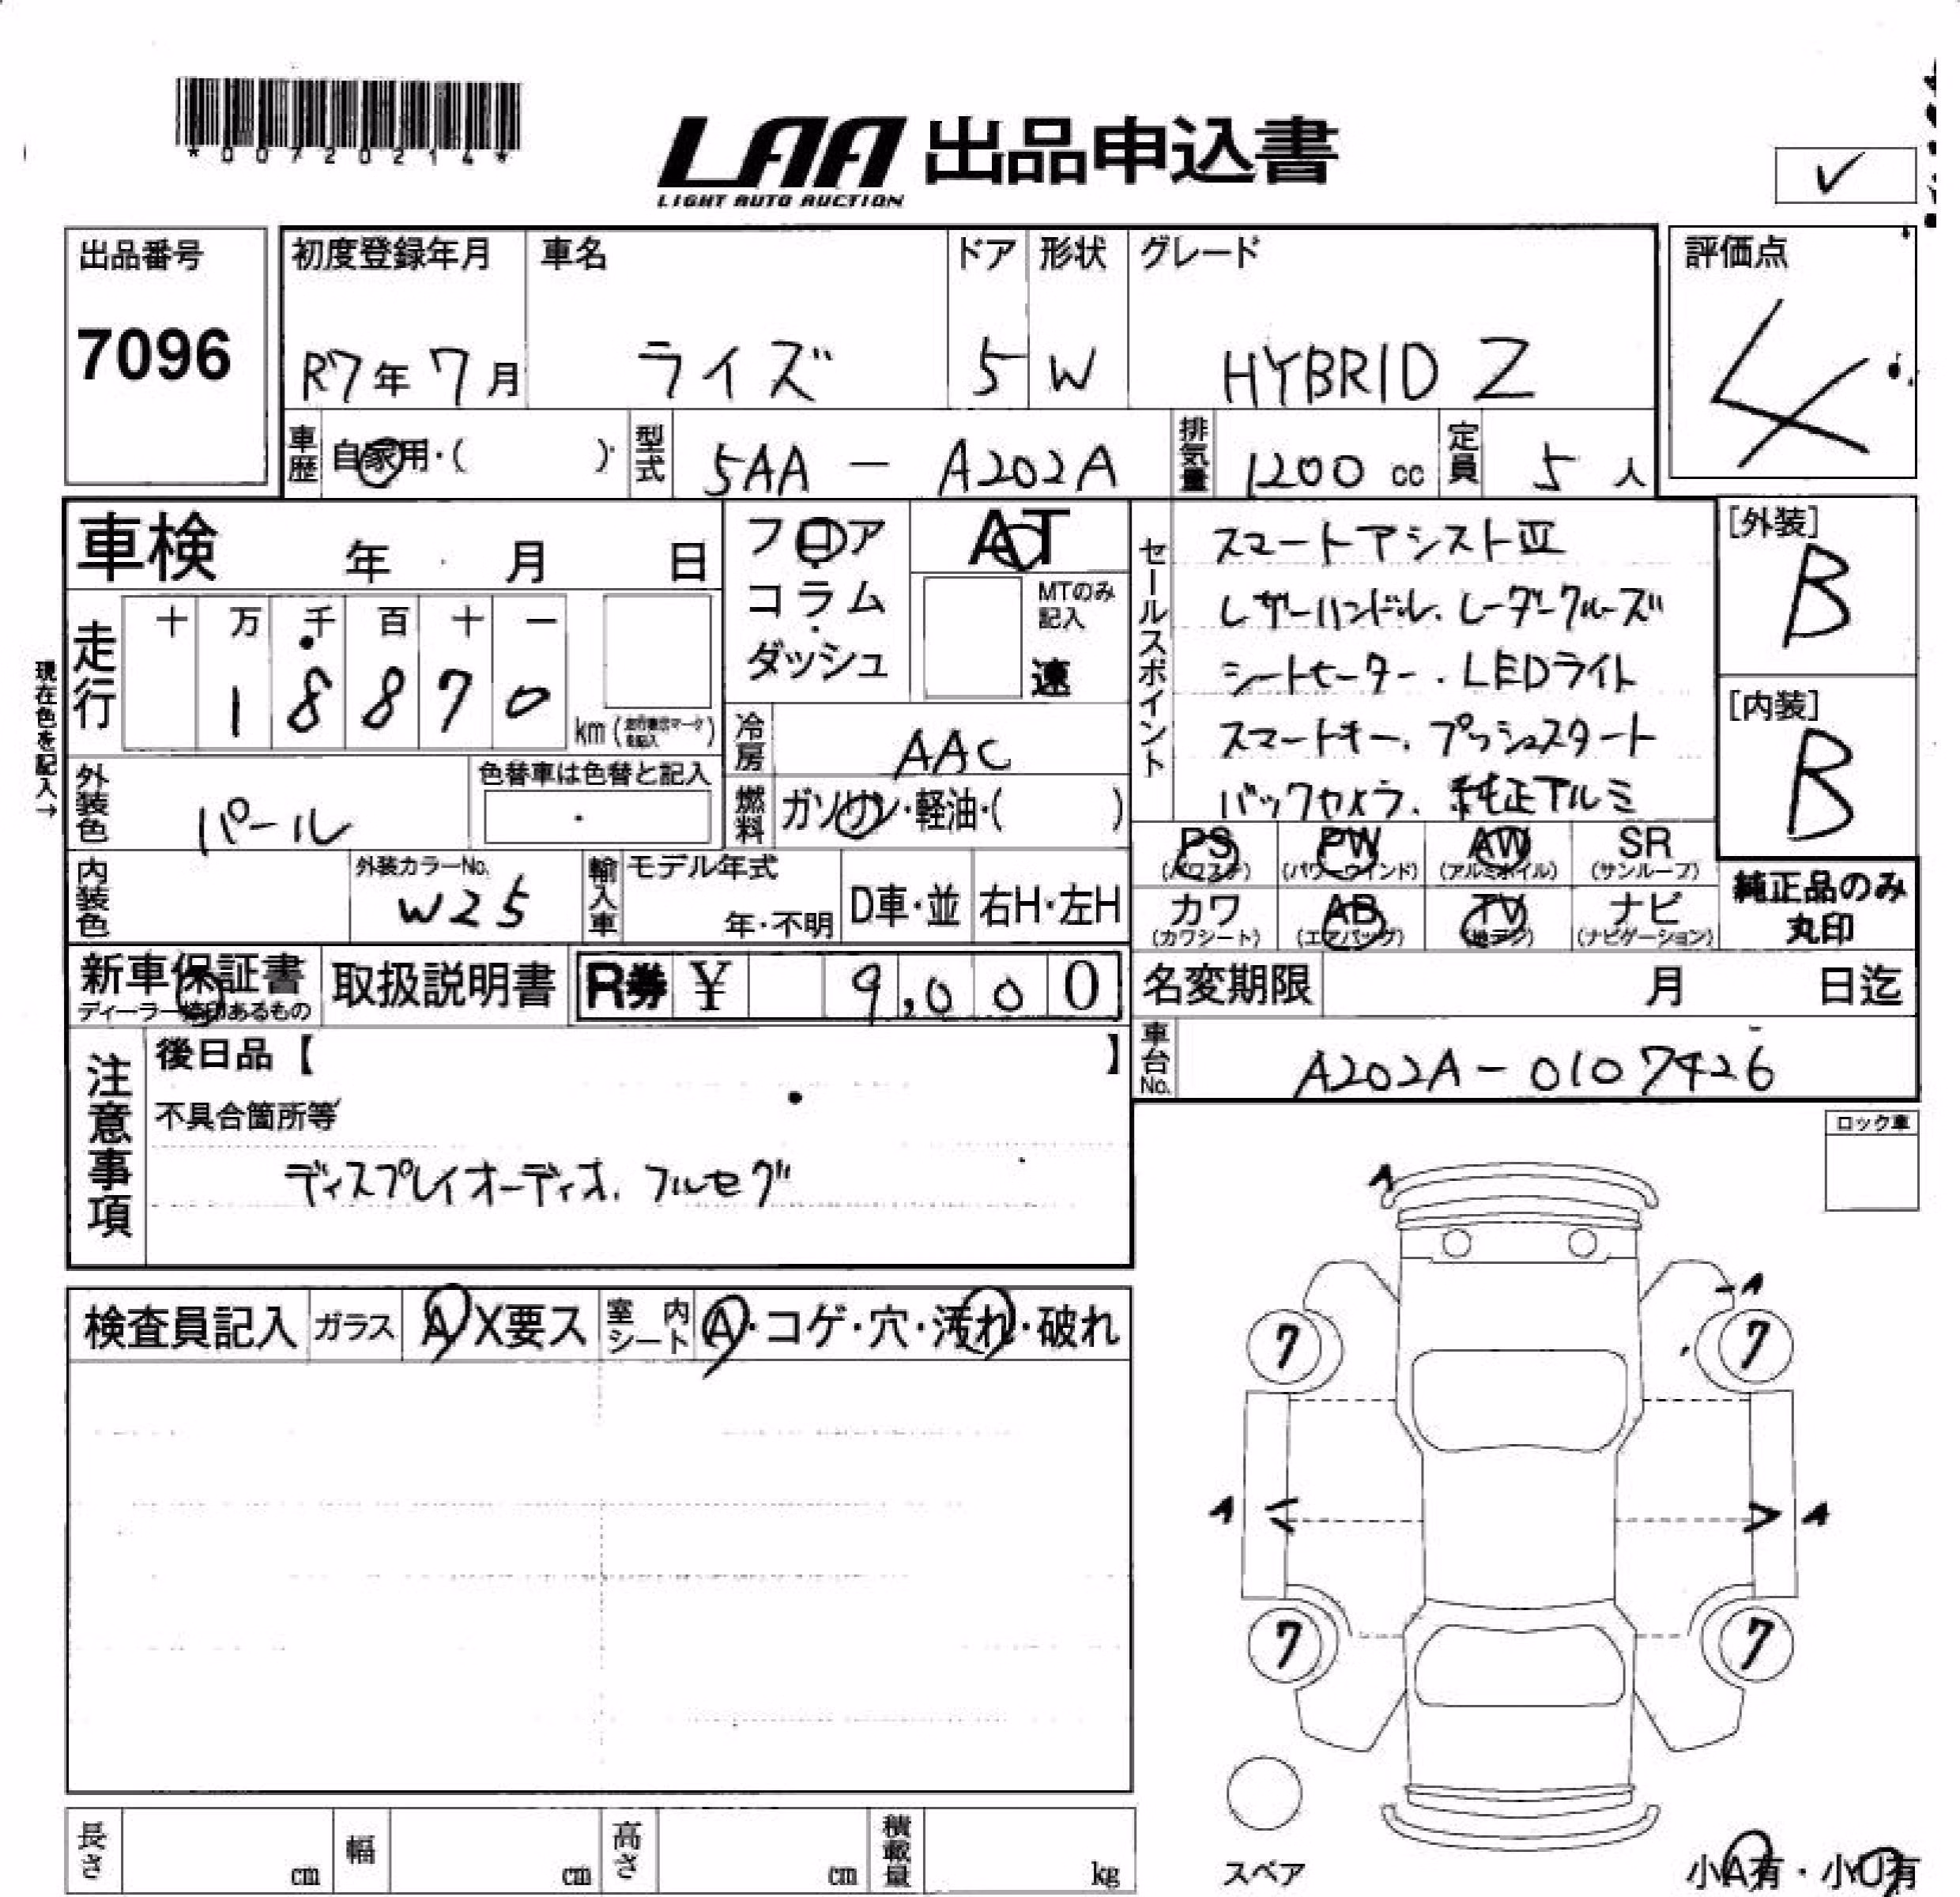 *00720214*
LAA 出品申込書
LIGHT AUTO AUCTION
✓
出品番号
7096
初度登録年月 車名 ドア 形状 グレード
R7年 7月 ライズ 5 W HYBRID Z
評価点
4
車歴 自家用・( ) 型式 5AA - A202A 排気量 1200 cc 定員 5 人
車検 年 月 日
フロア
コラム
ダッシュ
AT
MTのみ
記入
速
現在色を記入→
走行 十 万 千 百 十 一
1 8 8 7 0 km
セールスポイント
スマートアシストⅢ
レザーハンドル、レーダークルーズ
シートヒーター、LEDライト
スマートキー、プッシュスタート
バックカメラ、純正アルミ
[外装]
B
[内装]
B
冷房 AAC
外装色 パール
色替車は色替と記入
燃料 ガソリン・軽油・( )
PS PW AW SR
(パワステ) (パワーウインド) (アルミホイル) (サンルーフ)
カワ AB TV ナビ
(カワシート) (エアバッグ) (地デジ) (ナビゲーション)
純正品のみ
丸印
内装色
外装カラーNo.
W25
輸入車 モデル年式
年・不明
D車・並 右H・左H
新車保証書
ディーラー捺印あるもの
取扱説明書 R券 ¥ 9,000
名変期限 月 日迄
車台No. A202A-0107426
注意事項
後日品【 】
不具合箇所等
ディスプレイオーディオ、フルセグ
ロック車
検査員記入 ガラス A X要ス 室内シート A・コゲ・穴・汚れ・破れ
A
A
7 7
A A
7 7
スペア
小A有・小U有
長さ cm 幅 cm 高さ cm 積載量 kg